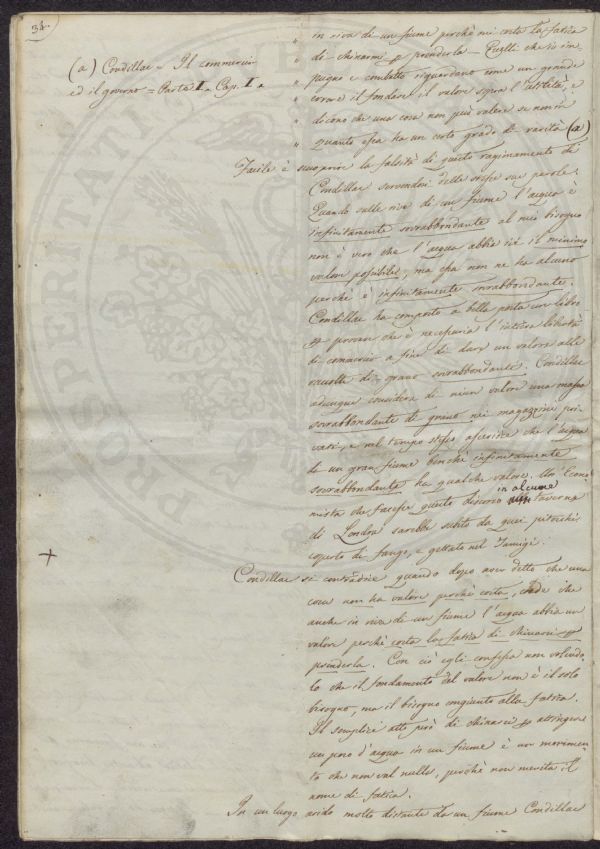 34.
(a) Condillac = Il commercio
ed il governo = Parte I. Cap. I.
" in riva di un fiume perchè mi costa la fatica
" di chinarmi p prenderla - Quelli che io im
" pugno e combatto riguardano come un grande
" errore il fondare il valore sopra l'utilità, e
" dicono che una cosa non può valere se non in
" quanto essa ha un certo grado di rarità (a)
Facile è scuoprire la falsità di questo raginamento di
Condillac servendosi delle stesse sue parole.
Quando sulle rive di un fiume l'acqua è
infinitamente sovrabbondante al mio bisogno
non è vero che l'acqua abbia ivi il minimo
valore possibile, ma essa non ne ha alcuno
perchè è infinitamente sovrabbondante.
Condillac ha composto a bella posta un libro
p provare che è necessaria l'intiera libertà
di comercio a fine di dare un valore alle
raccolte di grano sovrabbondante. Condillac
adunque considera di niun valore una massa
sovrabbondante di grano nei magazzini pri
vati, e nel tempo stesso asserisce che l'acqua
di un gran fiume benchè infinitamente
sovrabbondante ha qualche valore. Un Econo
mista che facesse questo discorso in alcune taverne
di Londra sarebbe subito da quei pitocchi
coperto di fango, e gettato nel Tamigi.
+
Condillac si contradice quando dopo aver detto che una
cosa non ha valore perchè costa, vede che
anche in riva di un fiume l'acqua abbia un
valore perchè costa la fatica di chinarsi p
prenderla. Con ciò egli confessa non volendo
lo che il fondamento del valore non è il solo
bisogno, ma il bisogno congiunto alla fatica.
Il semplice atto però di chinarsi p attingere
un poco d'acqua in un fiume è un movimen
to che non val nulla, perchè non merita il
nome di fatica.
In un luogo arido molto distante da un fiume Condillac